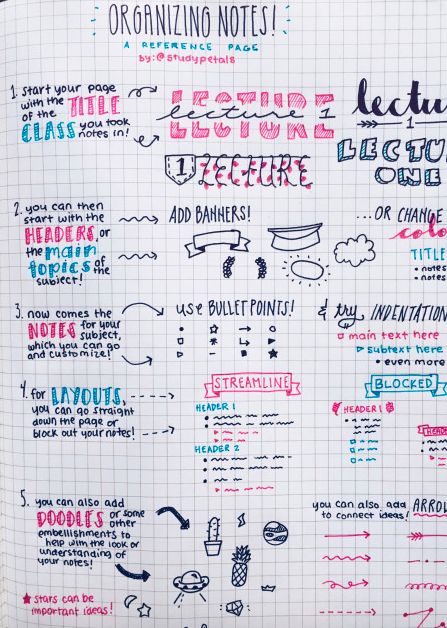 ORGANIZING NOTES!
A REFERENCE PAGE
by: @studypetals
1. start your page
with the TITLE
of the
CLASS you took
notes in!
LECTURE
lecture 1
LECTURE
1 LECTURE
lectu
1
LECTU
ONE
2. you can then
start with the
HEADERS, or
the main
topics of the
subject!
ADD BANNERS!
...OR CHANGE
colo
TITLE
• notes
• notes
3. now comes the
NOTES for your
subject,
which you can go
and customize!
use BULLET POINTS!
& try INDENTATION
main text here
subtext here
• even more
4. for LAYOUTS,
you can go straight
down the page or
block out your notes!
STREAMLINE
HEADER 1
HEADER 2
BLOCKED
HEADER 1
HEADE
5. you can also add
DOODLES or some
other
embellishments to
help with the look or
understanding of
your notes!
★ stars can be
important ideas!
you can also add ARROW
to connect ideas!